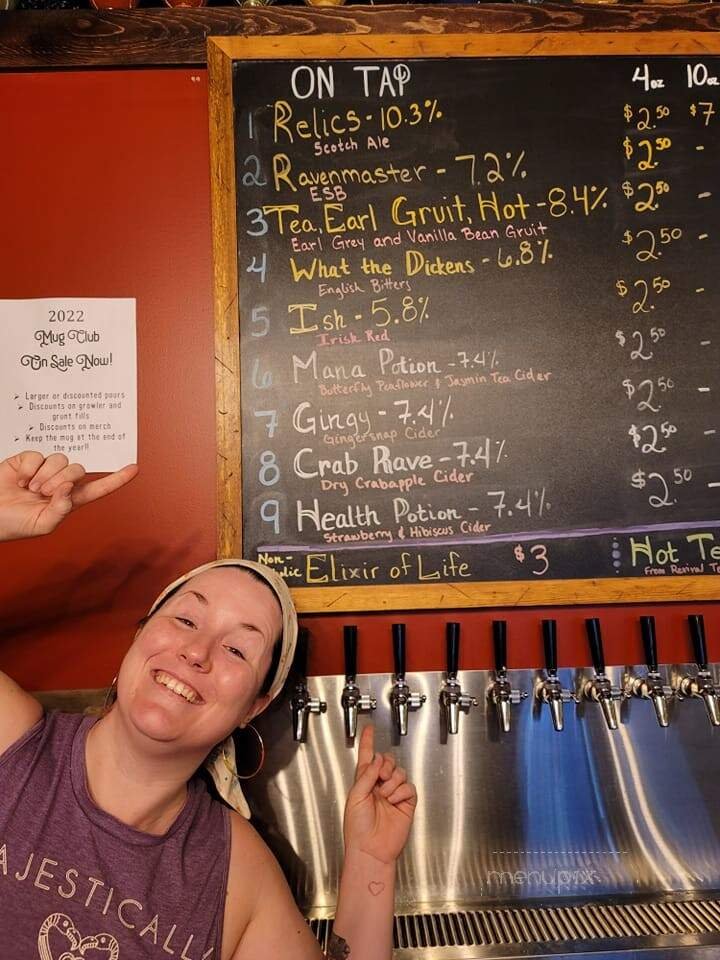 ON TAP 4oz 10oz
1 Relics - 10.3% $2.50 $7
Scotch Ale
2 Ravenmaster - 7.2% $2.50 -
ESB
3 Tea, Earl Gruit, Hot - 8.4% $2.50 -
Earl Grey and Vanilla Bean Gruit
4 What the Dickens - 6.8% $2.50 -
English Bitters
5 Ish - 5.8% $2.50 -
Irish Red
6 Mana Potion - 7.4% $2.50 -
Butterfly Peaflower & Jasmin Tea Cider
7 Gingy - 7.4% $2.50 -
Gingersnap Cider
8 Crab Rave - 7.4% $2.50 -
Dry Crabapple Cider
9 Health Potion - 7.4% $2.50 -
Strawberry & Hibiscus Cider
Non- Elixir of Life $3 Hot Te
From Revival Te
2022
Mug Club
On Sale Now!
➤ Larger or discounted pours
➤ Discounts on growler and
grunt fills
➤ Discounts on merch
➤ Keep the mug at the end of
the year!!
AJESTICALL
menupix